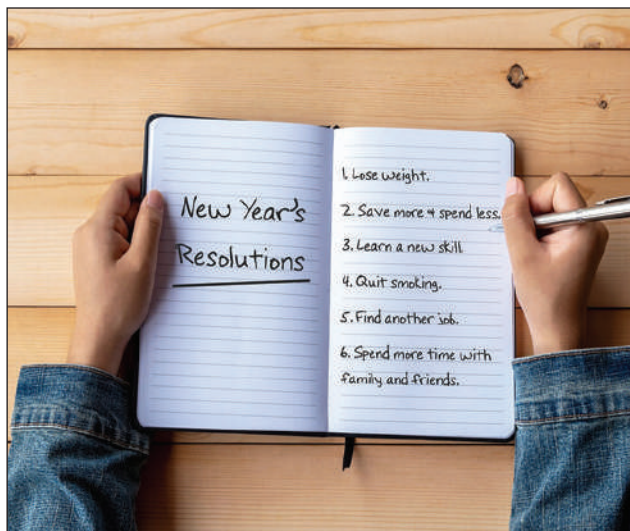 New Year's
Resolutions
1. Lose weight.
2. Save more & spend less.
3. Learn a new skill
4. Quit smoking.
5. Find another job.
6. Spend more time with
family and friends.